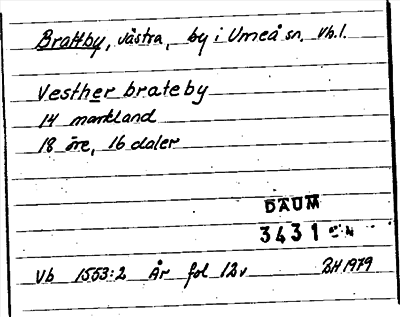 Brattby, västra, by i Umeå sn, Vb.l.
Vesther brateby
14 markland
18 öre, 16 daler
DAUM
3431
Vb 1553:2 År fol 12v BH1979